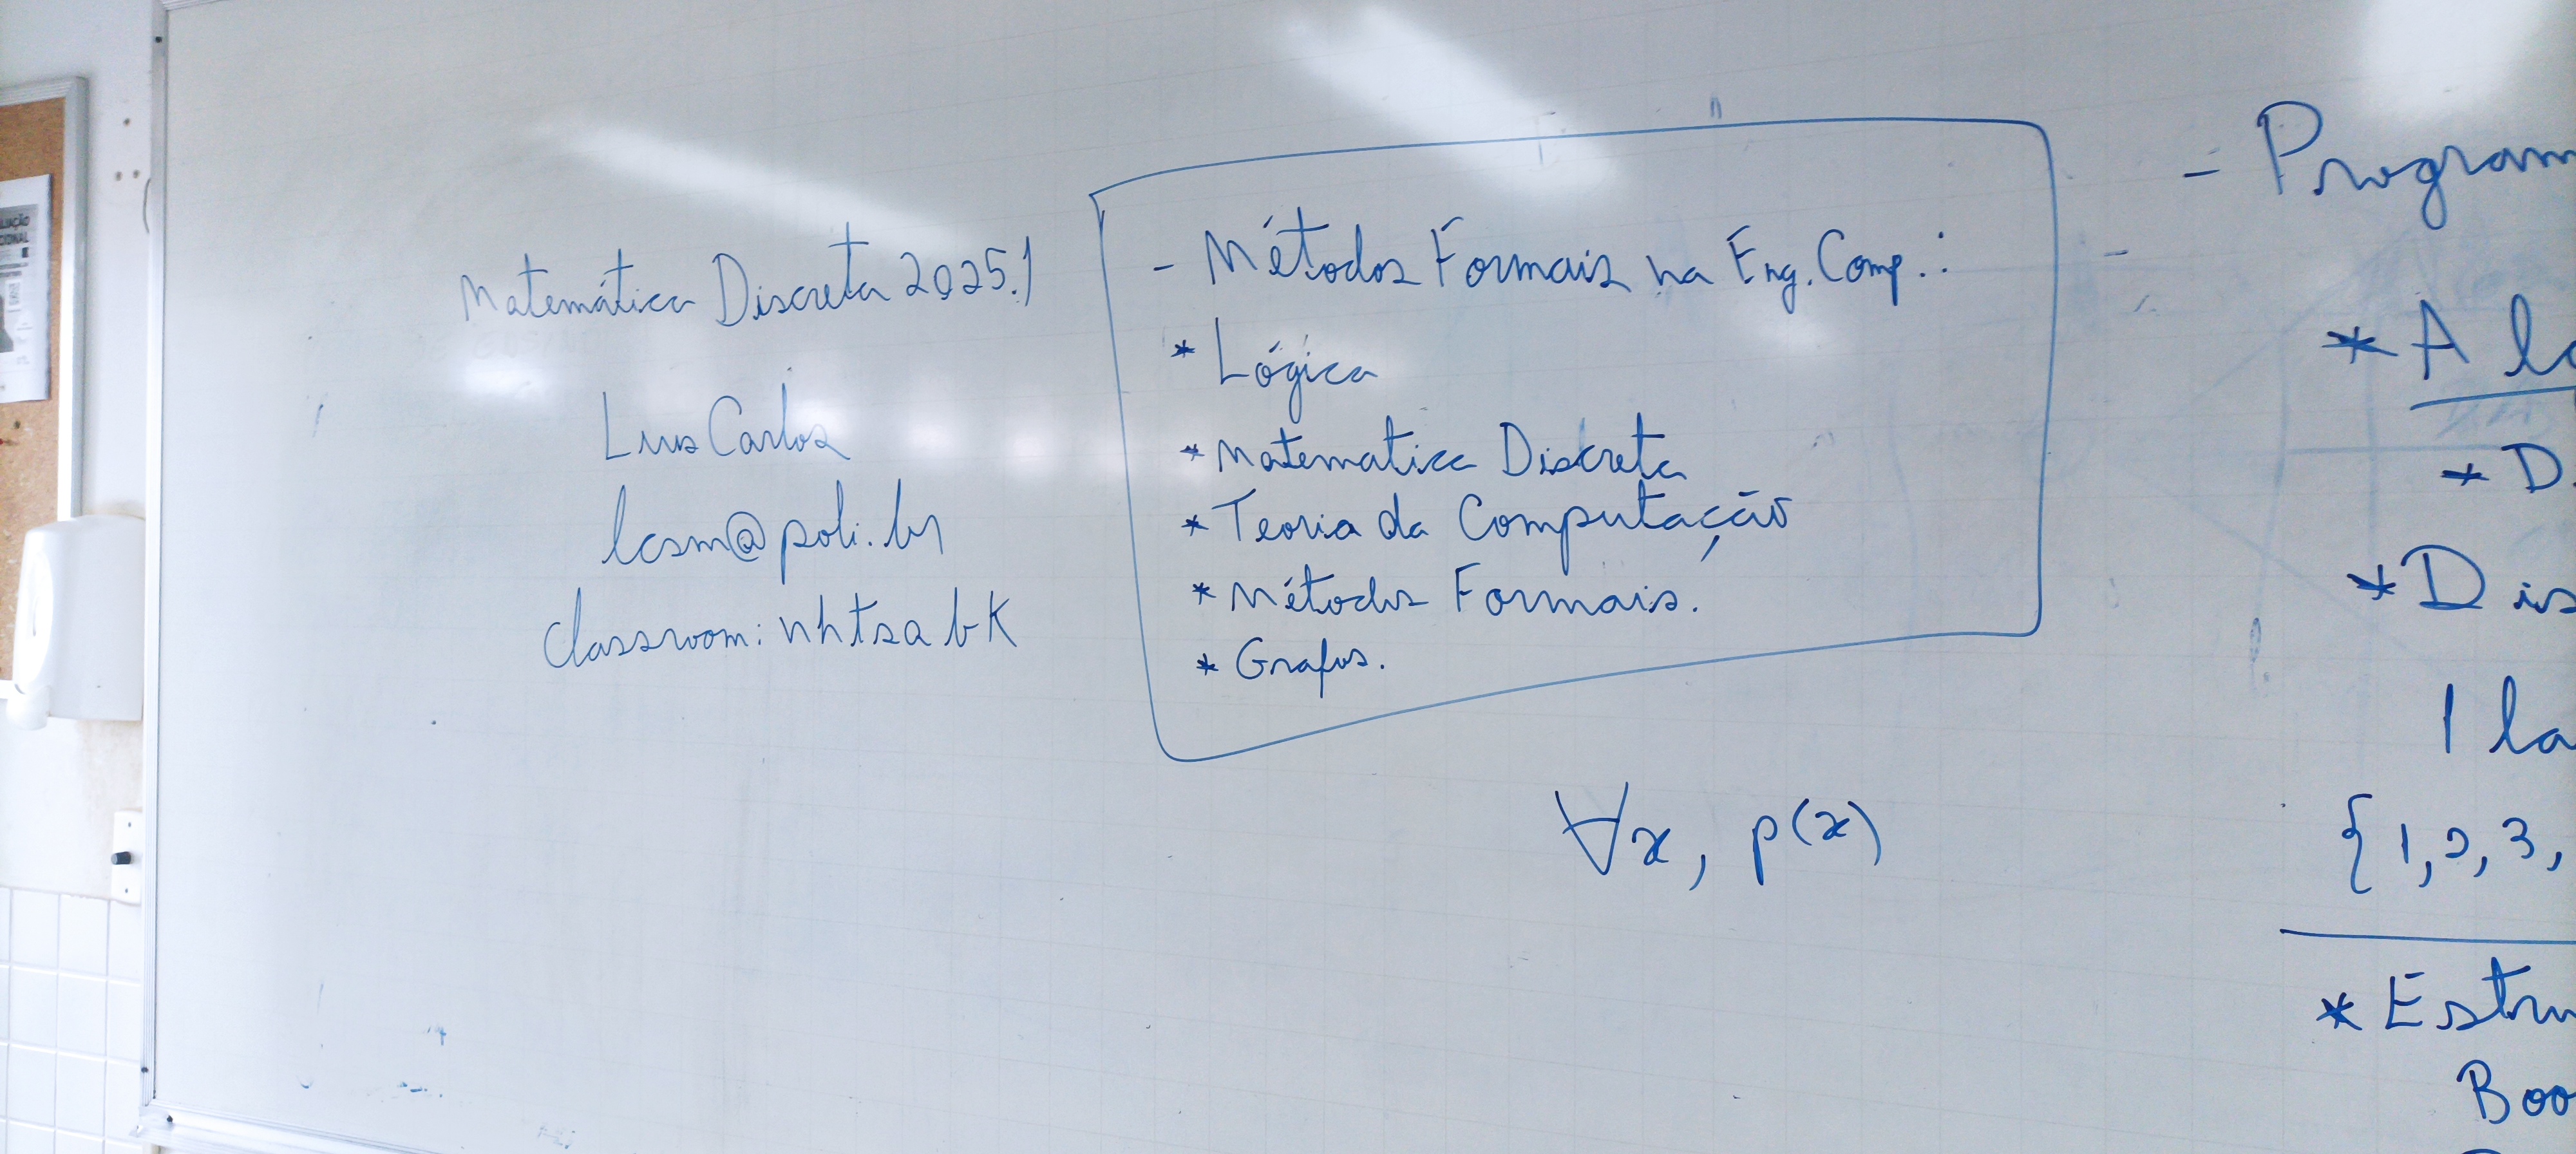 Matemática Discreta 2025.1
Luis Carlos
lcsm@poli.br
classroom: nhtsabk
- Métodos Formais na Eng. Comp.:
* Lógica
* Matematica Discreta
* Teoria da Computação
* Métodos Formais.
* Grafos.
∀x, p(x)
- Program
-
* A
* D.
* Dis
1 la
{1, 2, 3,
* Estru
Boo